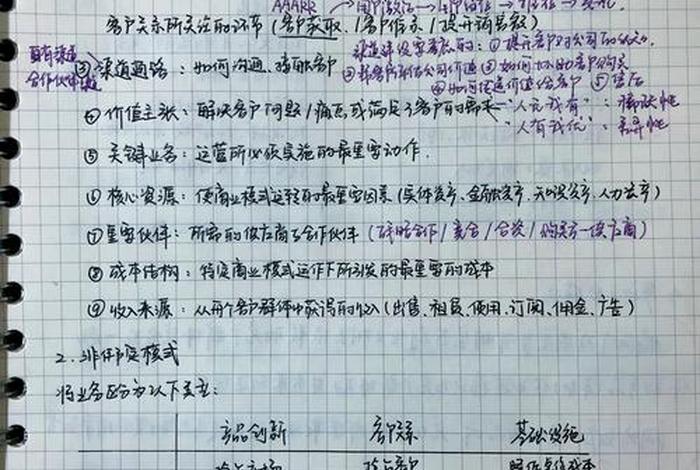 AARRR → 用户激活 → 用户留存 →
客户关系所关注的环节（客户获取 / 客户维系 / 提升销售额）
自有渠道
合作伙伴渠道
③ 渠道通路：如何沟通、接触客户
渠道建设客户的：① 提升客户对公司的认知
② 帮客户评估公司价值 ③ 如何协助客户购买
④ 如何传递价值给客户 ⑤ 售后
④ 价值主张：解决客户问题 / 痛点或满足了客户的需求
“人无我有”：
“人有我优”：差异性
⑤ 关键业务：运营所必须实施的最重要动作.
⑥ 核心资源：使商业模式运转的最重要因素（实体资产、金融资产、知识资产、人力资产）
⑦ 重要伙伴：所需的供应商与合作伙伴（战略合作 / 竞合 / 合资 / 购买方—供应商）
⑧ 成本结构：特定商业模式运作下所引发的最重要的成本
⑨ 收入来源：从每个客户群体中获得的收入（出售、租赁、使用、订阅、佣金、广告）
2. 非绑定模式
将业务区分为以下类型：
产品创新 客户关系 基础设施
抢占市场 抢占客户